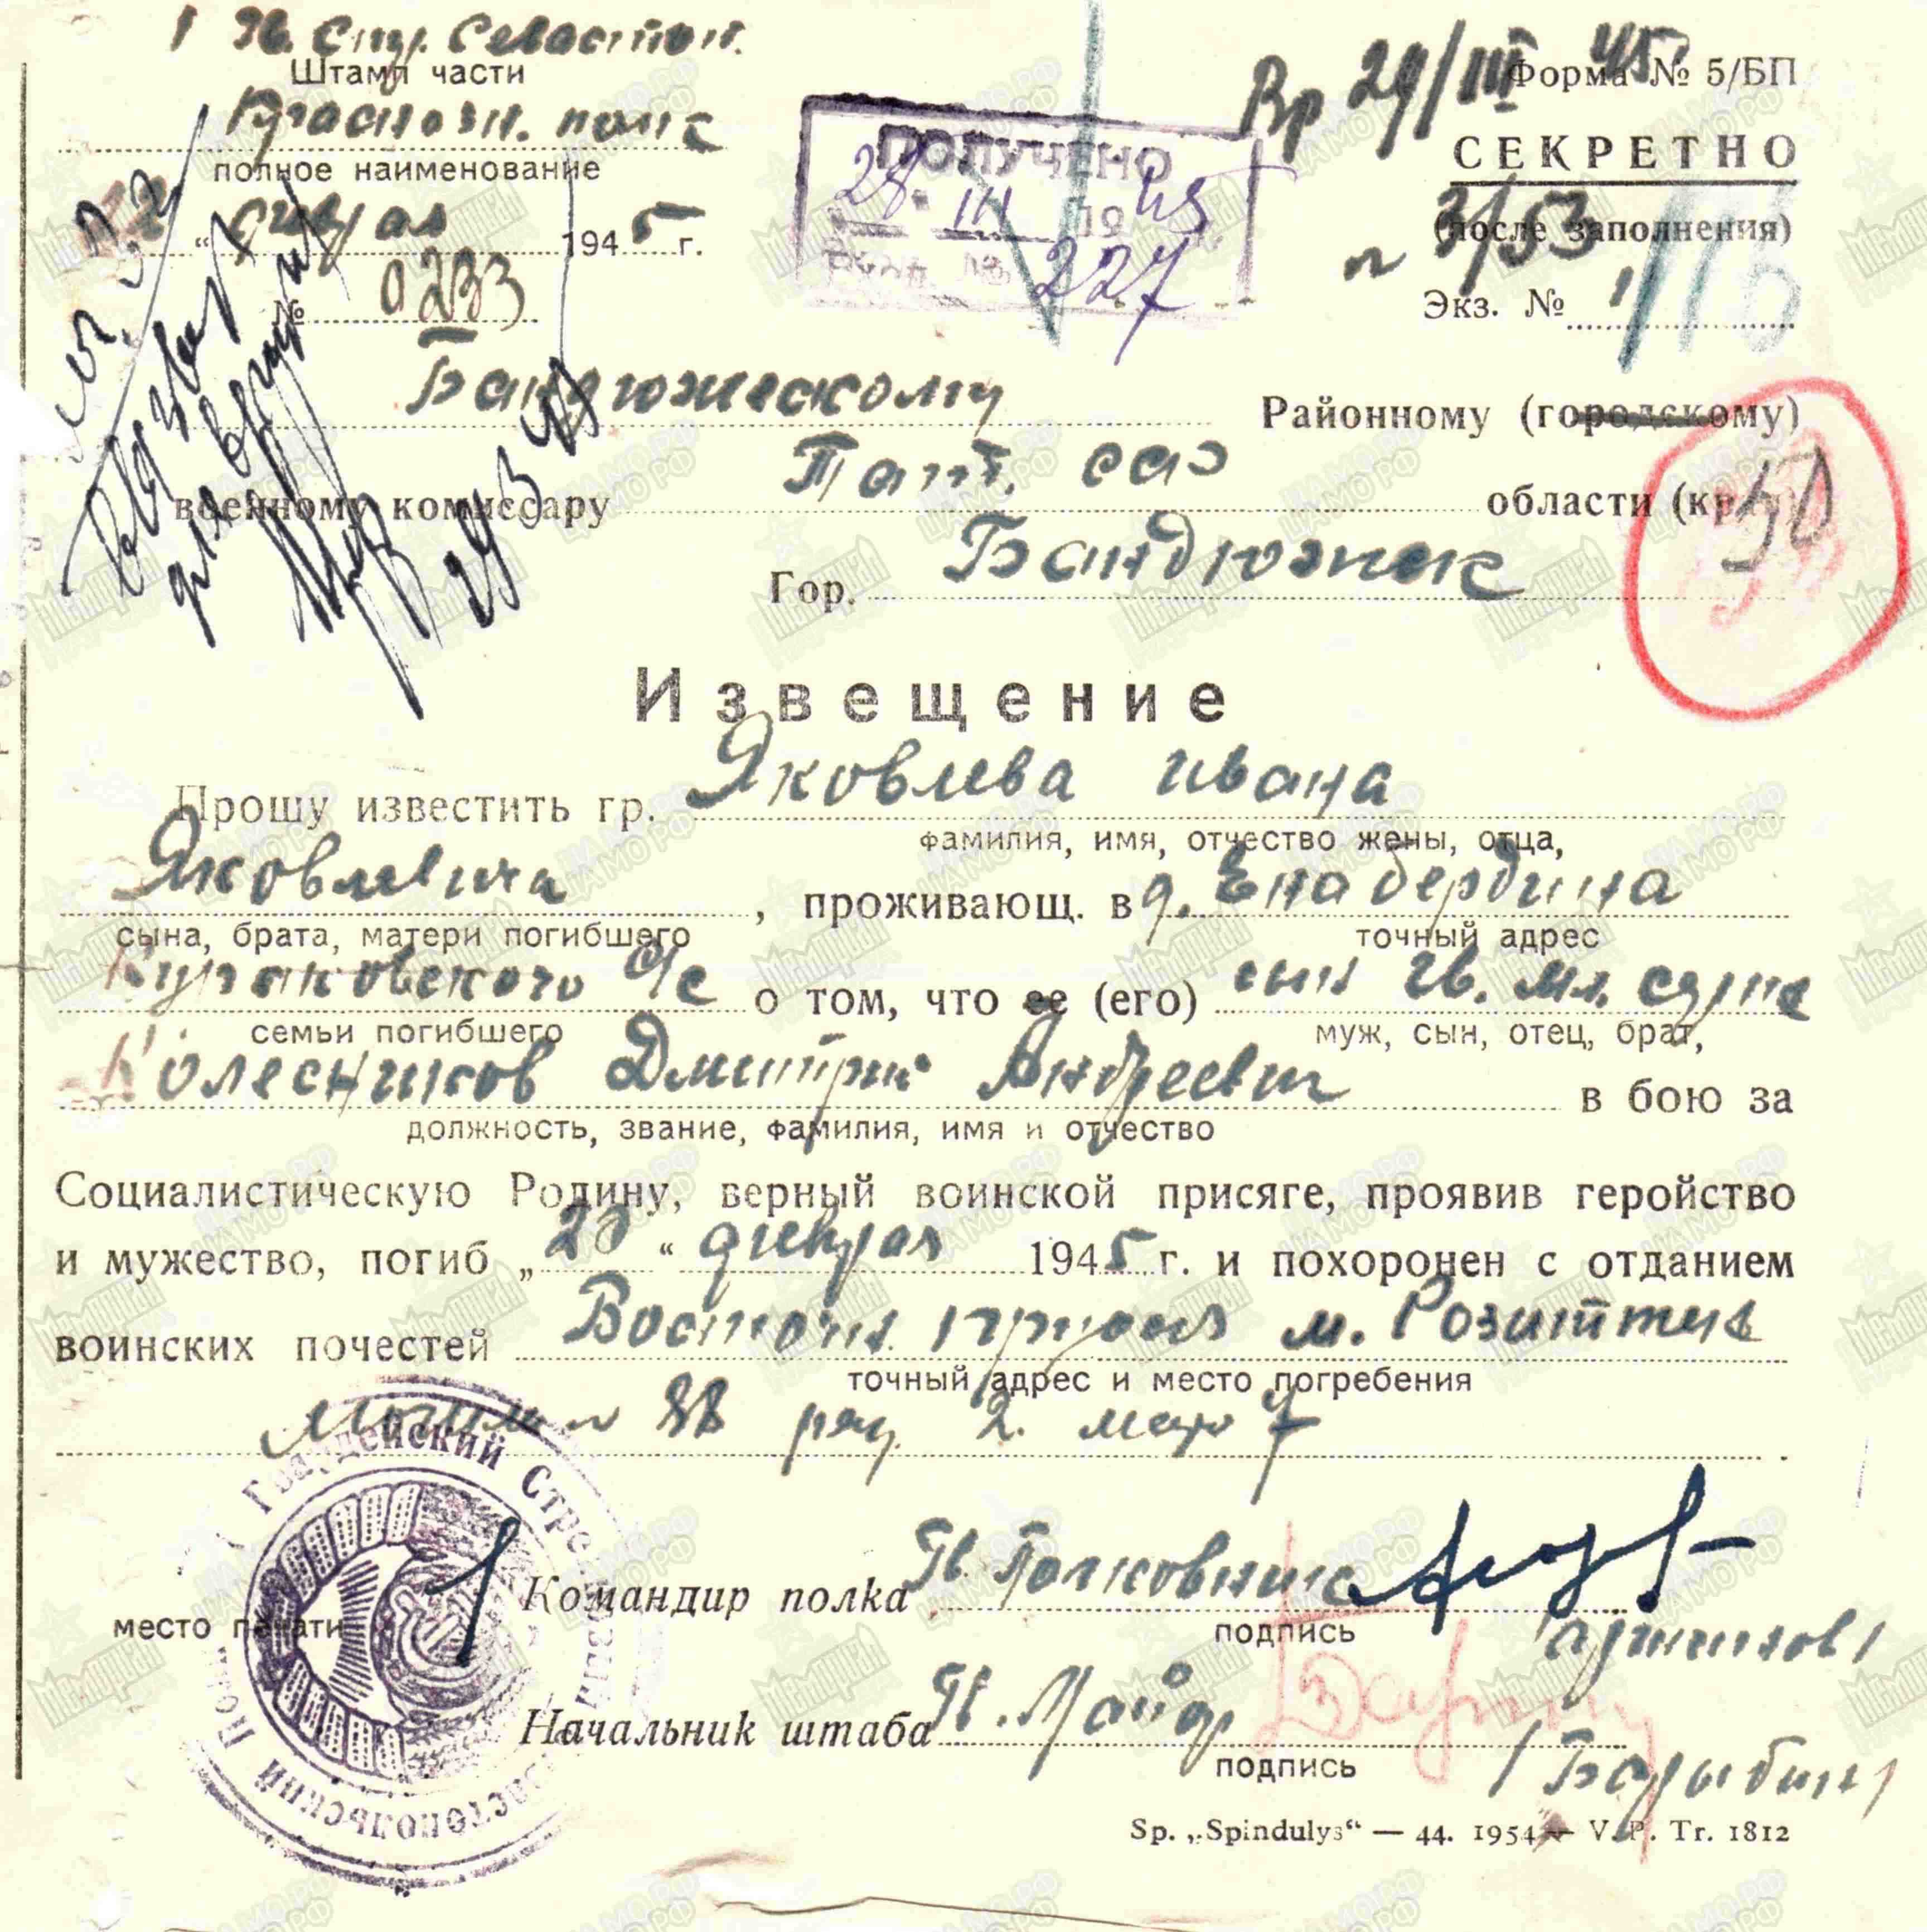 1 Гв. Стр. Севастоп.
Штамп части
Краснозн. полк
полное наименование
"февраля 1945 г.
№ 0233
ПОЛУЧЕНО
28. III 1945
227
Вр 29/III 45
Форма № 5/БП
СЕКРЕТНО
(после заполнения)
3/53
Экз. № 1
Бандюжескому Районному (городскому)
военному комиссару Тат. сср области (края)
Гор. Бандюжск
Вызвать
для вручения
29 3 45
Извещение
Прошу известить гр. Яковлева Ивана
фамилия, имя, отчество жены, отца,
Яковлевича, проживающ. в д. Енабердина
сына, брата, матери погибшего точный адрес
Кураковского с/с о том, что ее (его) сын гв. мл. сержт
семьи погибшего муж, сын, отец, брат,
Колесников Дмитрий Андреевич в бою за
должность, звание, фамилия, имя и отчество
Социалистическую Родину, верный воинской присяге, проявив геройство
и мужество, погиб „ “ февраля 1945 г. и похоронен с отданием
воинских почестей Восточн. Пруссия м. Розиттен
точный адрес и место погребения
Могила 88 ряд 2. место 7
Гвардейский Стрелковый Севастопольский
место печати
Командир полка Гв. Полковник
подпись
Начальник штаба Гв. Майор
подпись
/Барыбин/
Sp. „Spindulys“ — 44. 1954 — V. P. Tr. 1812
Мемориал
ЦАМО РФ